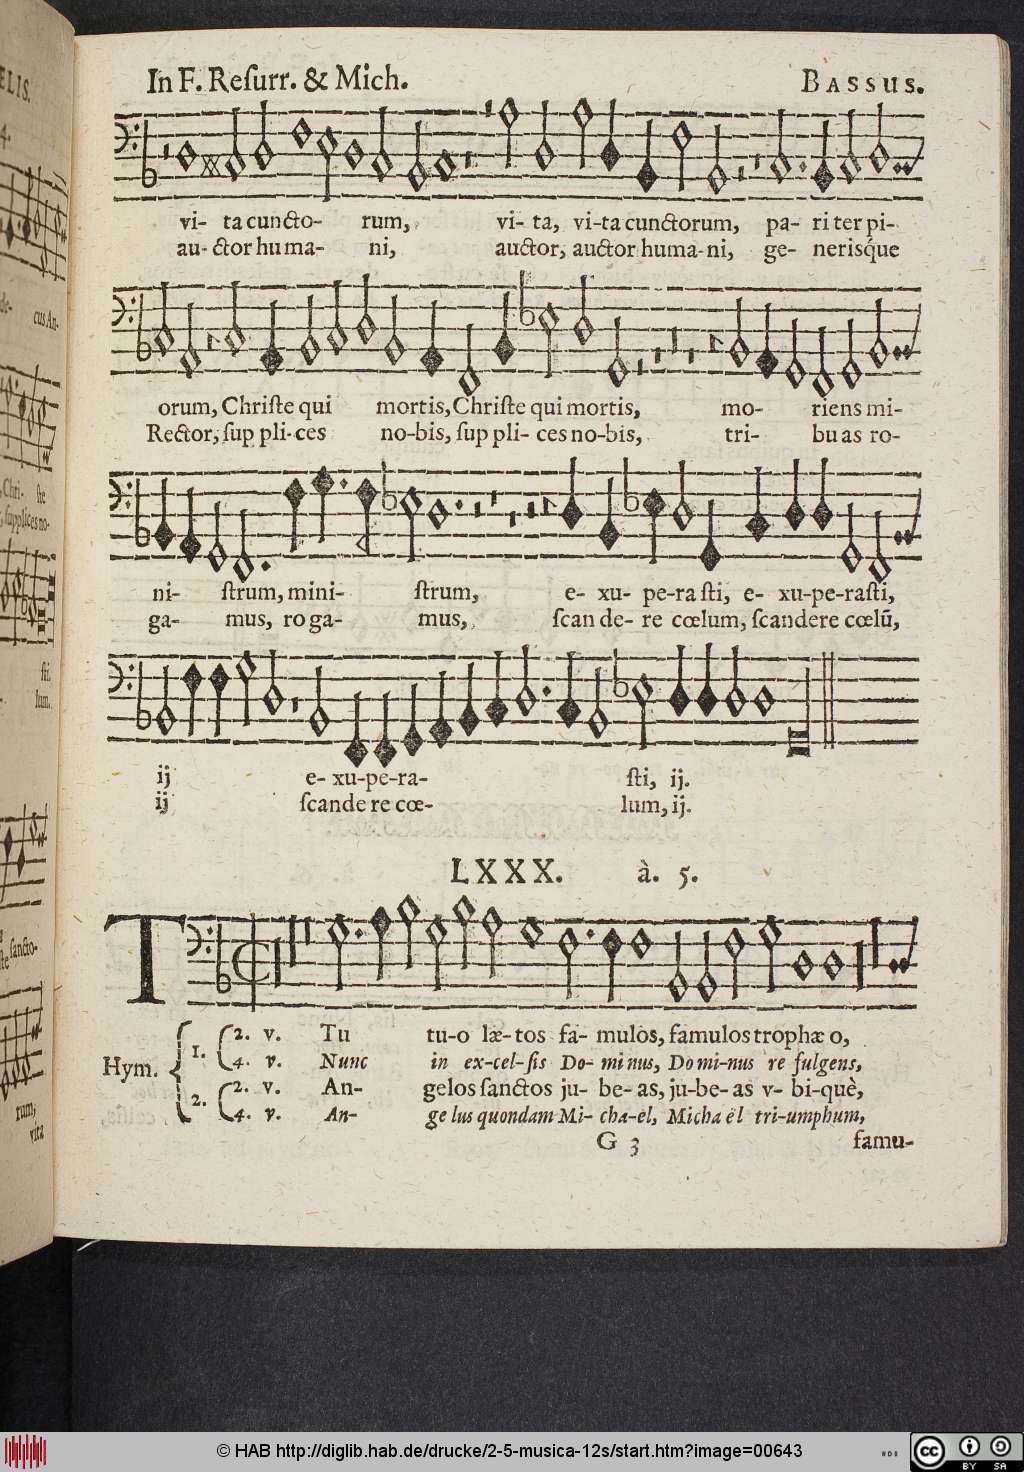 In F. Reſurr. & Mich. BASSUS.
vi- ta cuncto- rum, vi- ta, vi-ta cunctorum, pa- ri ter pi-
au- ctor hu ma- ni, auctor, auctor huma-ni, ge- nerisq́ue
orum, Chriſte qui mortis, Chriſte qui mortis, mo- riens mi-
Rector, ſup pli-ces no-bis, ſup pli- ces no-bis, tri- bu as ro-
ni- ſtrum, mini- ſtrum, e- xu- pe-ra ſti, e- xu-pe-raſti,
ga- mus, ro ga- mus, ſcan de- re cœlum, ſcandere cœlũ,
ij e- xu-pe-ra- ſti, ij.
ij ſcande re cœ- lum, ij.
LXXX. à. 5.
T
Hym. 1. 2. v. Tu tu-o læ-tos fa- mulos, famulos trophæ o,
4. v. Nunc in ex-cel-ſis Do- mi nus, Do mi-nus re fulgens,
2. 2. v. An- gelos ſanctos ju- be- as, ju-be- as v- bi-què,
4. v. An- ge lus quondam Mi- cha-el, Micha ël tri-umphum,
G 3 famu-
ELIS.
4.
de- cus An-
Chri- ſte
ſupplices no-
ſti.
lum.
ſancto-
rum,
vita
© HAB http://diglib.hab.de/drucke/2-5-musica-12s/start.htm?image=00643
cc BY SA